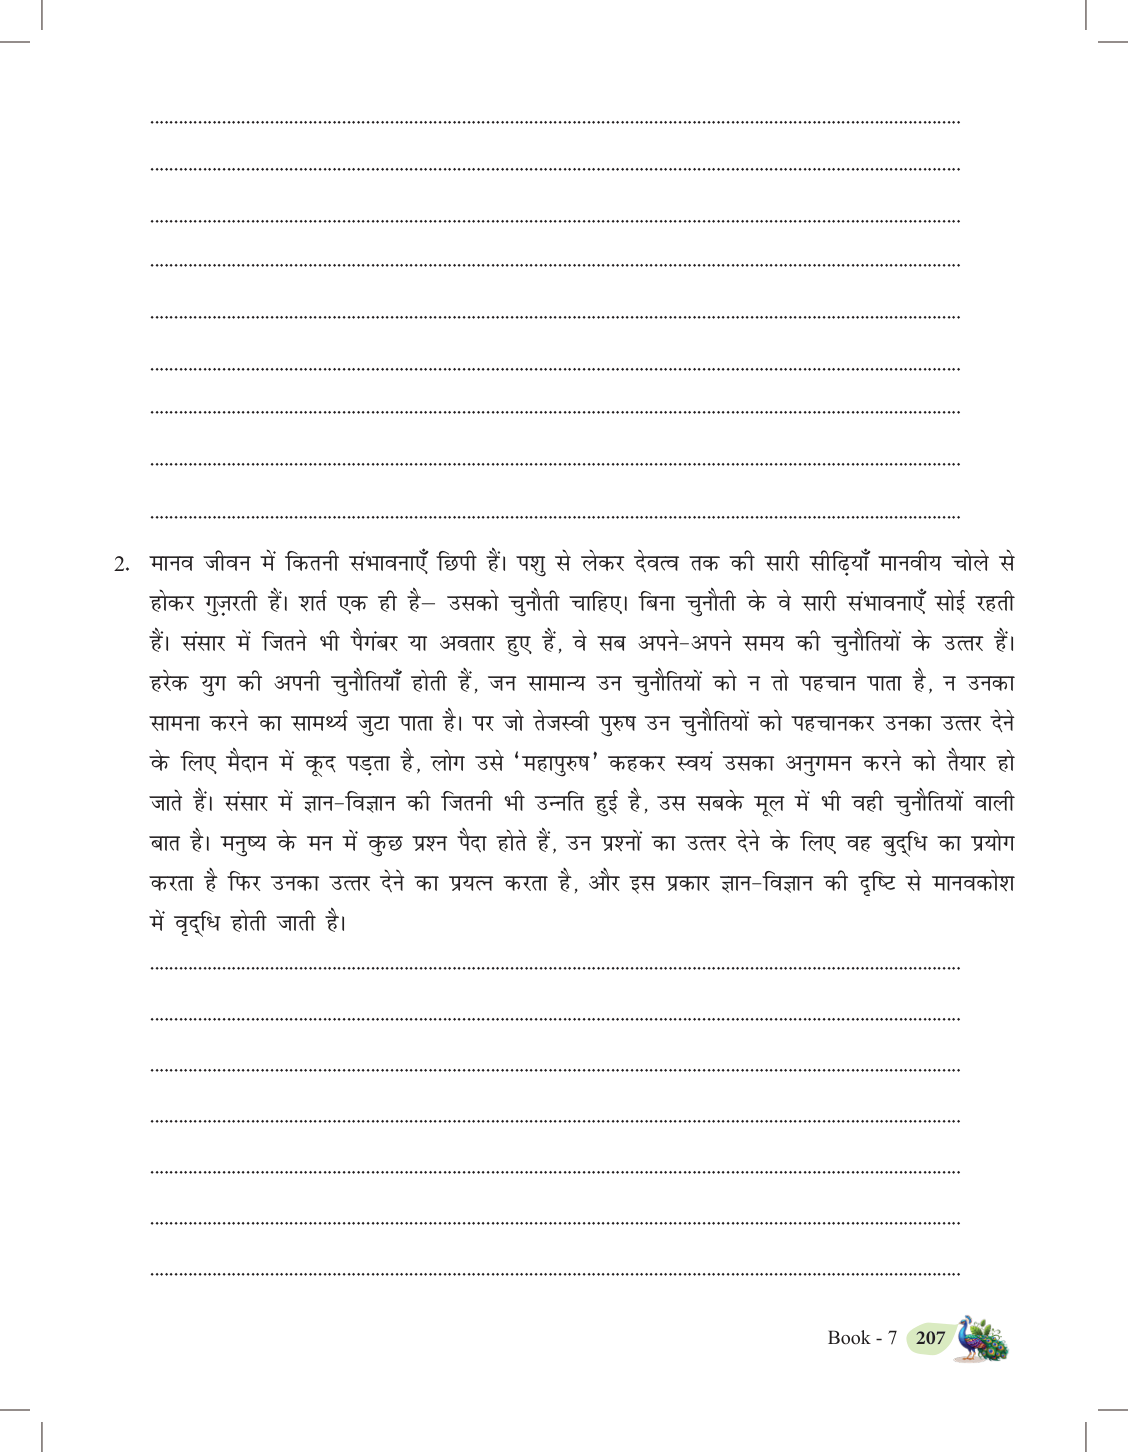 2. मानव जीवन में कितनी संभावनाएँ छिपी हैं। पशु से लेकर देवत्व तक की सारी सीढ़ियाँ मानवीय चोले से
होकर गुज़रती हैं। शर्त एक ही है– उसको चुनौती चाहिए। बिना चुनौती के वे सारी संभावनाएँ सोई रहती
हैं। संसार में जितने भी पैगंबर या अवतार हुए हैं, वे सब अपने-अपने समय की चुनौतियों के उत्तर हैं।
हरेक युग की अपनी चुनौतियाँ होती हैं, जन सामान्य उन चुनौतियों को न तो पहचान पाता है, न उनका
सामना करने का सामर्थ्य जुटा पाता है। पर जो तेजस्वी पुरुष उन चुनौतियों को पहचानकर उनका उत्तर देने
के लिए मैदान में कूद पड़ता है, लोग उसे ‘महापुरुष’ कहकर स्वयं उसका अनुगमन करने को तैयार हो
जाते हैं। संसार में ज्ञान-विज्ञान की जितनी भी उन्नति हुई है, उस सबके मूल में भी वही चुनौतियों वाली
बात है। मनुष्य के मन में कुछ प्रश्न पैदा होते हैं, उन प्रश्नों का उत्तर देने के लिए वह बुद्‌धि का प्रयोग
करता है फिर उनका उत्तर देने का प्रयत्न करता है, और इस प्रकार ज्ञान-विज्ञान की दृष्टि से मानवकोश
में वृद्‌धि होती जाती है।
Book - 7 207